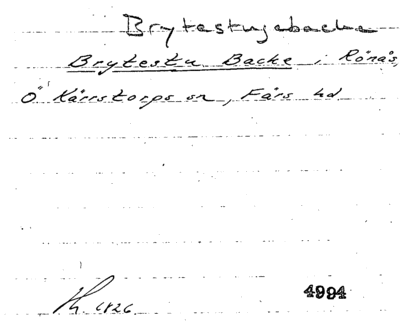 Brytestugebacke
Brytestu Backe i Rönås,
Ö Kärrstorps sn, Färs hd
1826 4994